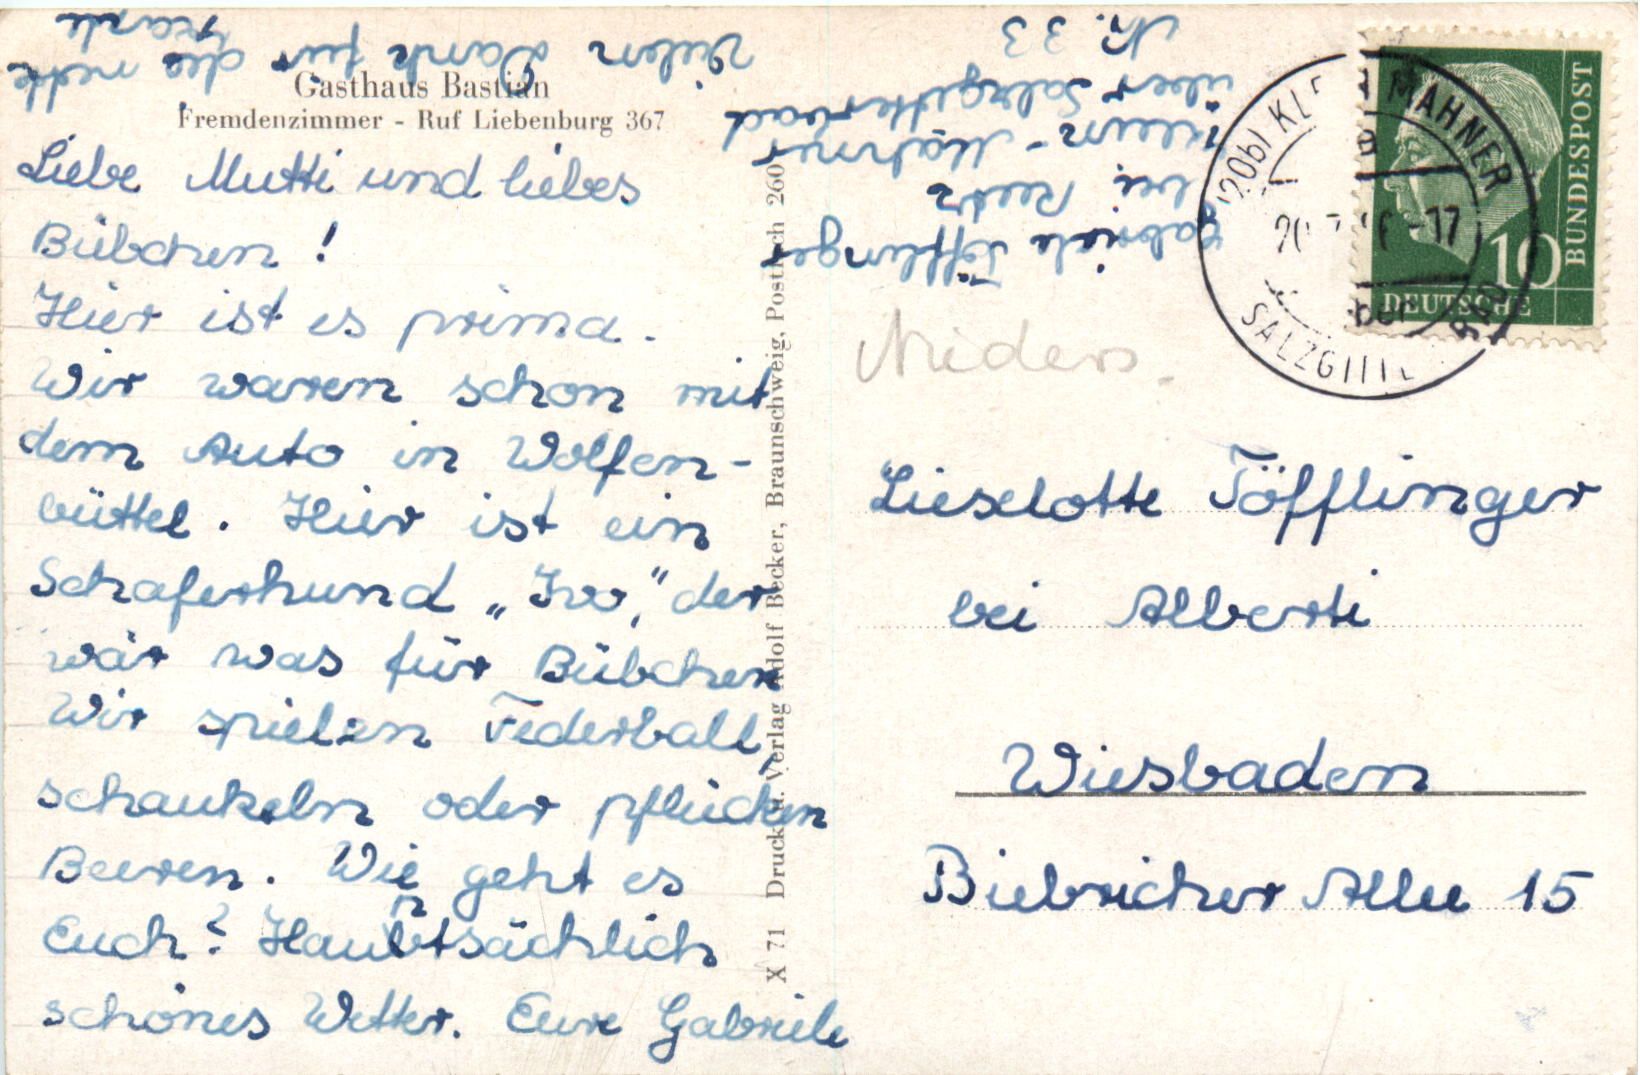 Gasthaus Bastian
Fremdenzimmer - Ruf Liebenburg 367
Liebe Mutti und liebes
Bübchen!
Hier ist es prima.
Wir waren schon mit
dem Auto in Wolfen-
büttel. Hier ist ein
Schäferhund „Ivo," der
wär was für Bübchen
Wir spielen Federball,
schaukeln oder pflücken
Beeren. Wie geht es
Euch? Hauptsächlich
schönes Wetter. Eure Gabriele
Vielen Dank für die nette
Karte
Gabriele Töfflinger
bei Reetz
Klein-Mahner
über Salzgitterbad
Nr. 33
X 71 Druck u. Verlag Adolf Becker, Braunschweig, Postfach 260
(20b) KLEIN MAHNER
-17
über
SALZGITTER BAD
10
DEUTSCHE
BUNDESPOST
Nieders.
Lieselotte Töfflinger
bei Alberti
Wiesbaden
Biebricher Allee 15